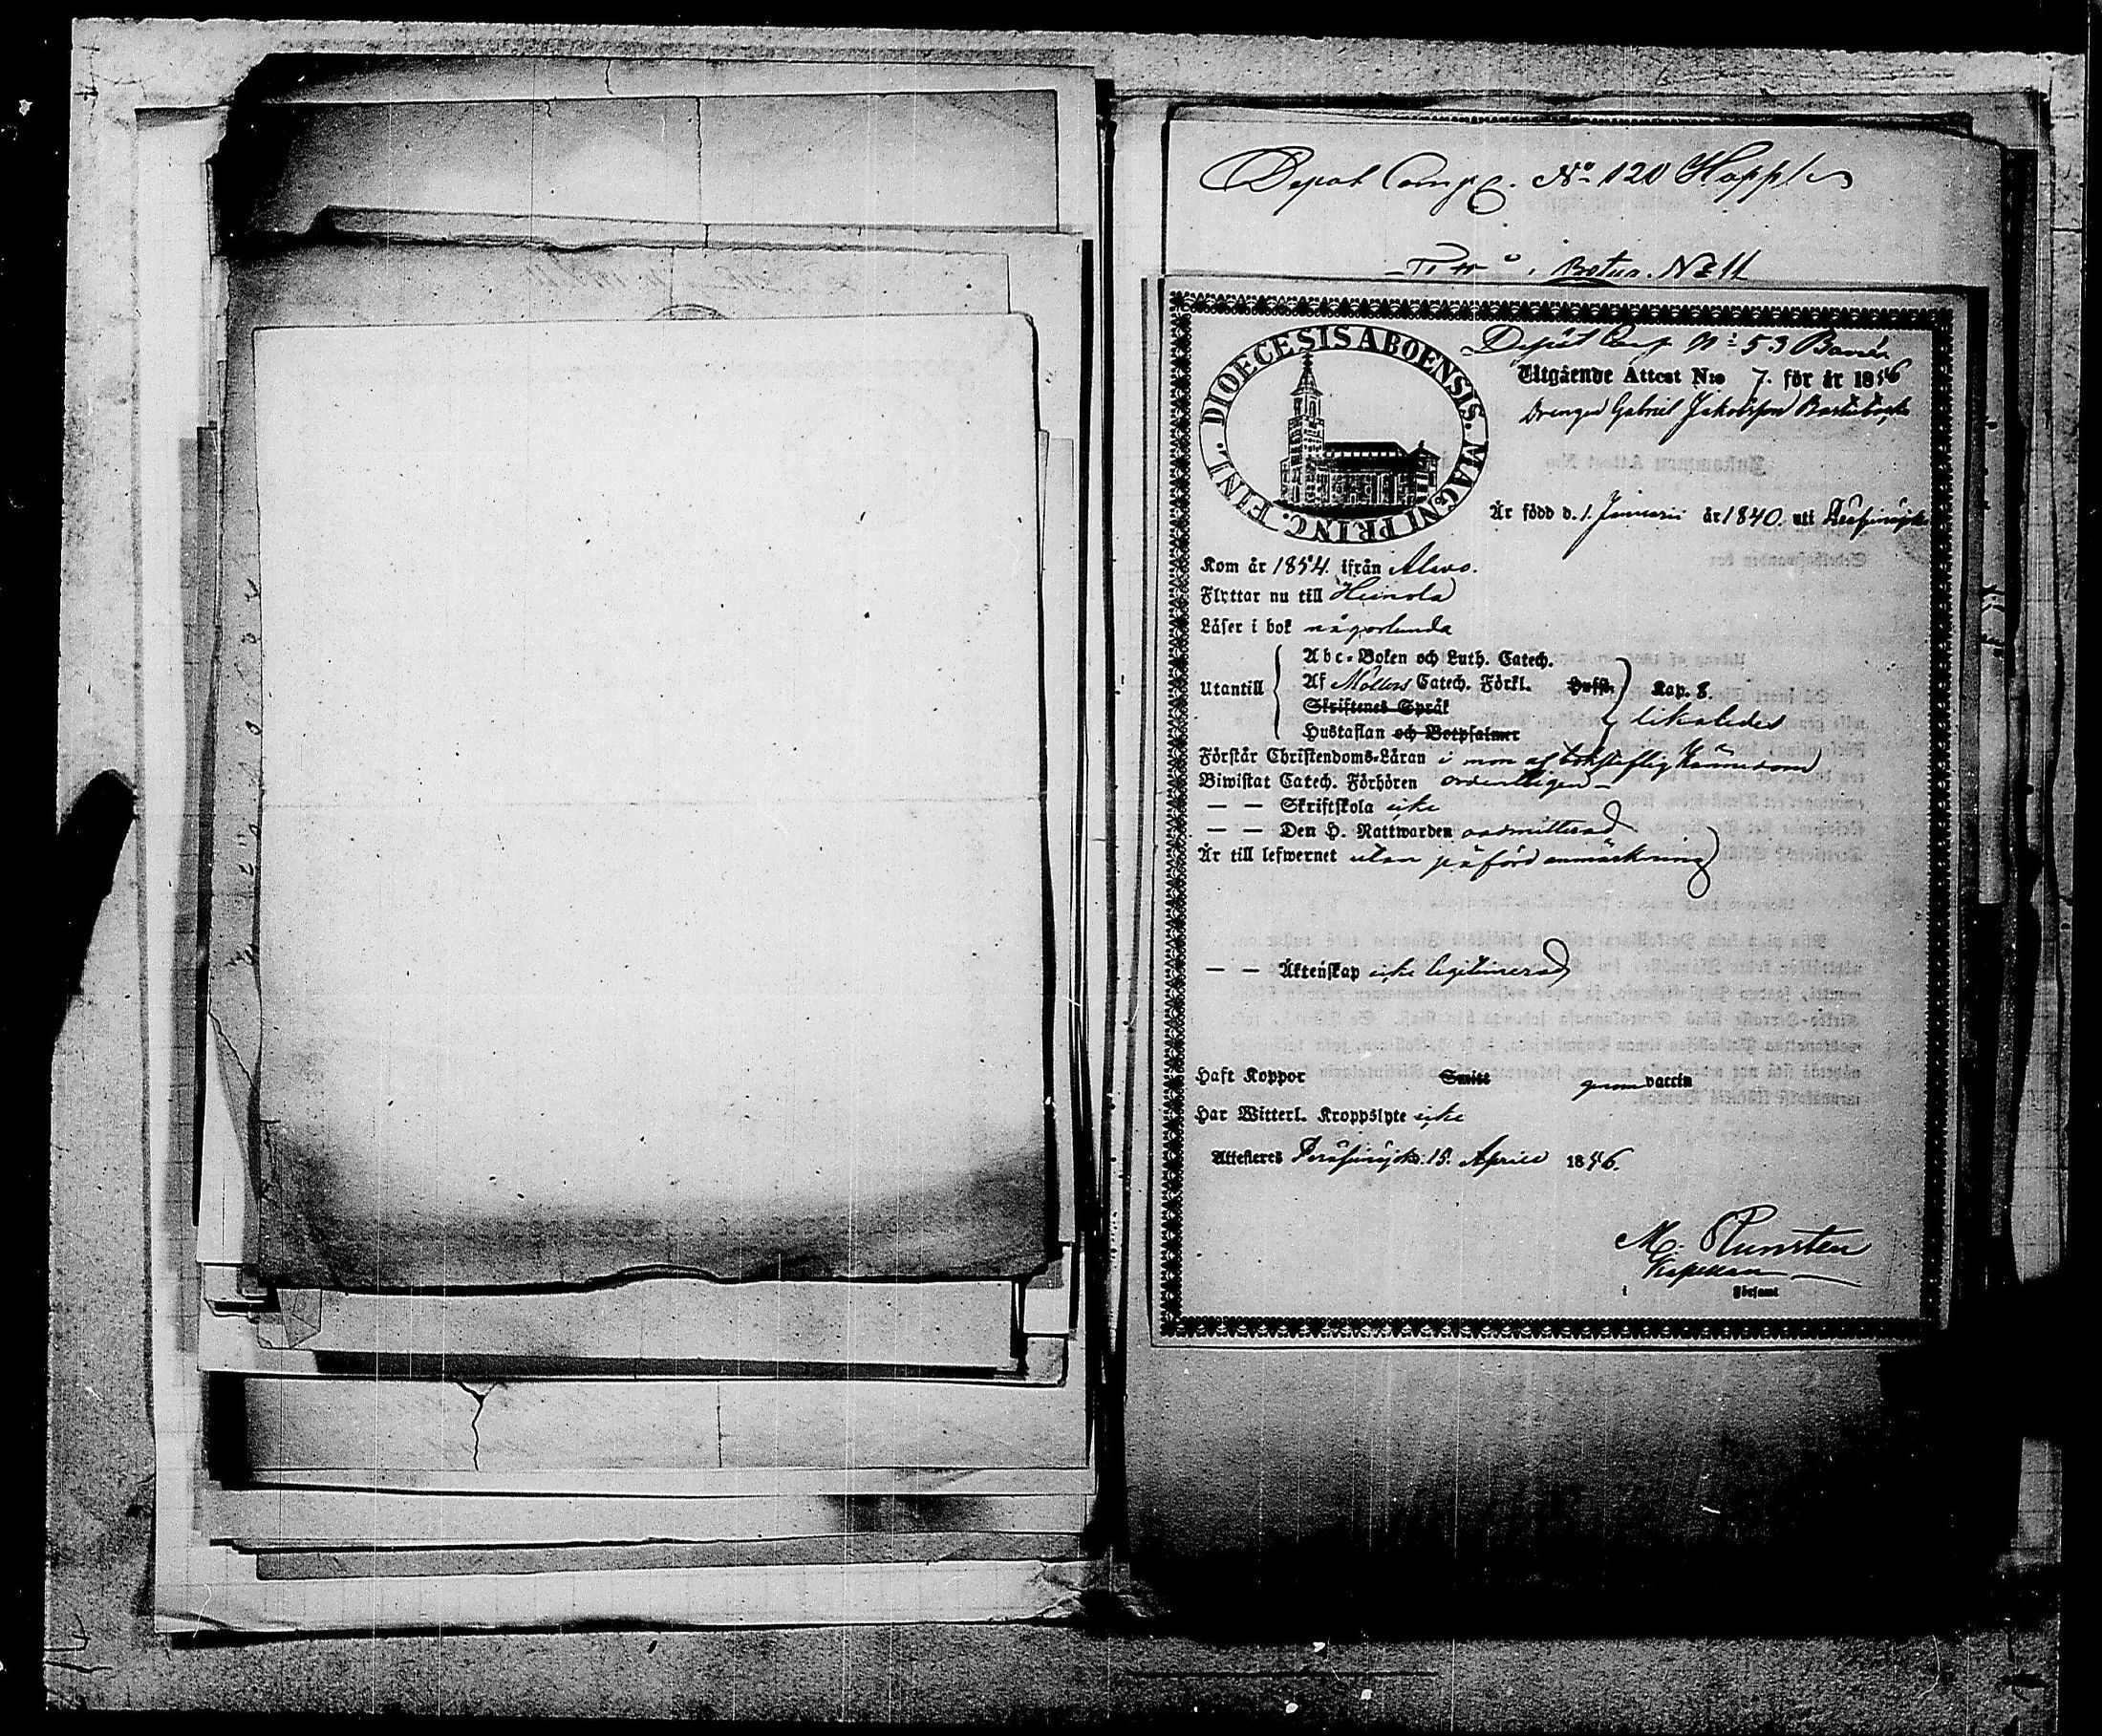 Depot Comp. No 120 Hopple
Botus. N 11
DIOECESIS ABOENSIS. MAGNI PRINC. FINL.
Depôt Comp N:o 53 Banér
Utgående Attest N:o 7. för år 1856
Drengen Gabriel Jakobsson
Är född d. 1. Januarii år 1840. uti Peräseinäjoki
Kom år 1854. ifrån Alavo.
Flyttar nu till Heinola
Läser i bok någorlunda
Utantill
Abc-Boken och Luth. Catech.
Af Möllers Catech. Förkl. Hufst. Kap. 8.
Skriftenes Språk
Hustaflan och Botpsalmer
likaledes
Förstår Christendoms-Läran i mon af bokstaflig kännedom
Biwistat Catech. Förhören ordentligen –
— — Skriftskola icke
— — Den H. Nattwarden oadmitterad
Är till lefwernet utan påförd anmärkning
— — Äktenskap icke legitimerad
Haft Koppor Smitt genom vaccin
Har Witterl. Kroppslyte icke
Attesteras Peräseinäjoki. 15. April 1856.
M. Runsten
Kapellan
i Församl